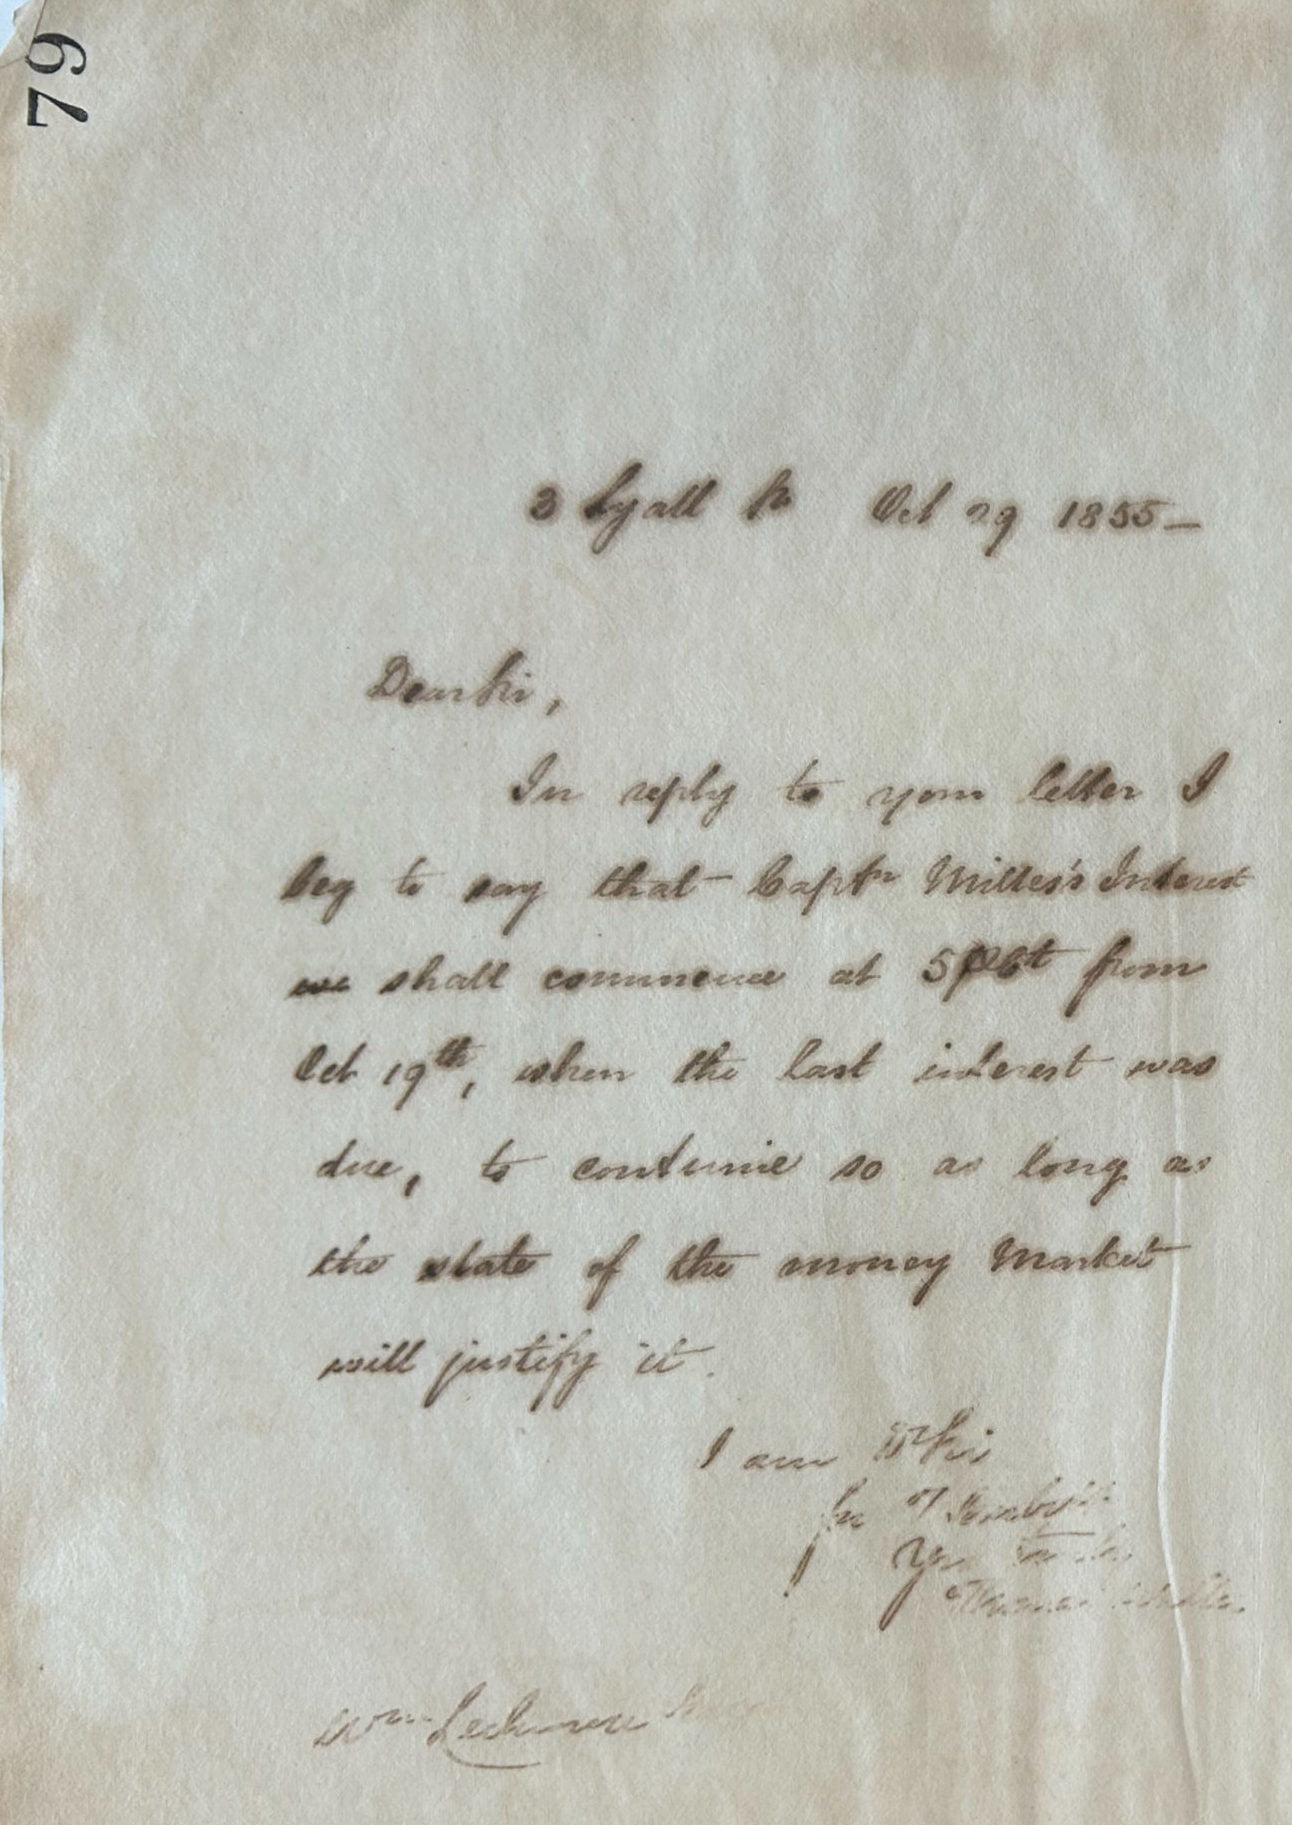 79
3 Lyall St Oct 29 1855 —
Dear Sir,
In reply to your letter I
beg to say that Captn Milles's Interest
we shall commence at 5 P Ct from
Oct 19th, when the last interest was
due, to continue so as long as
the state of the money Market
will justify it.
I am Dr Sir
for
Yrs
Thomas
Wm Lechmere